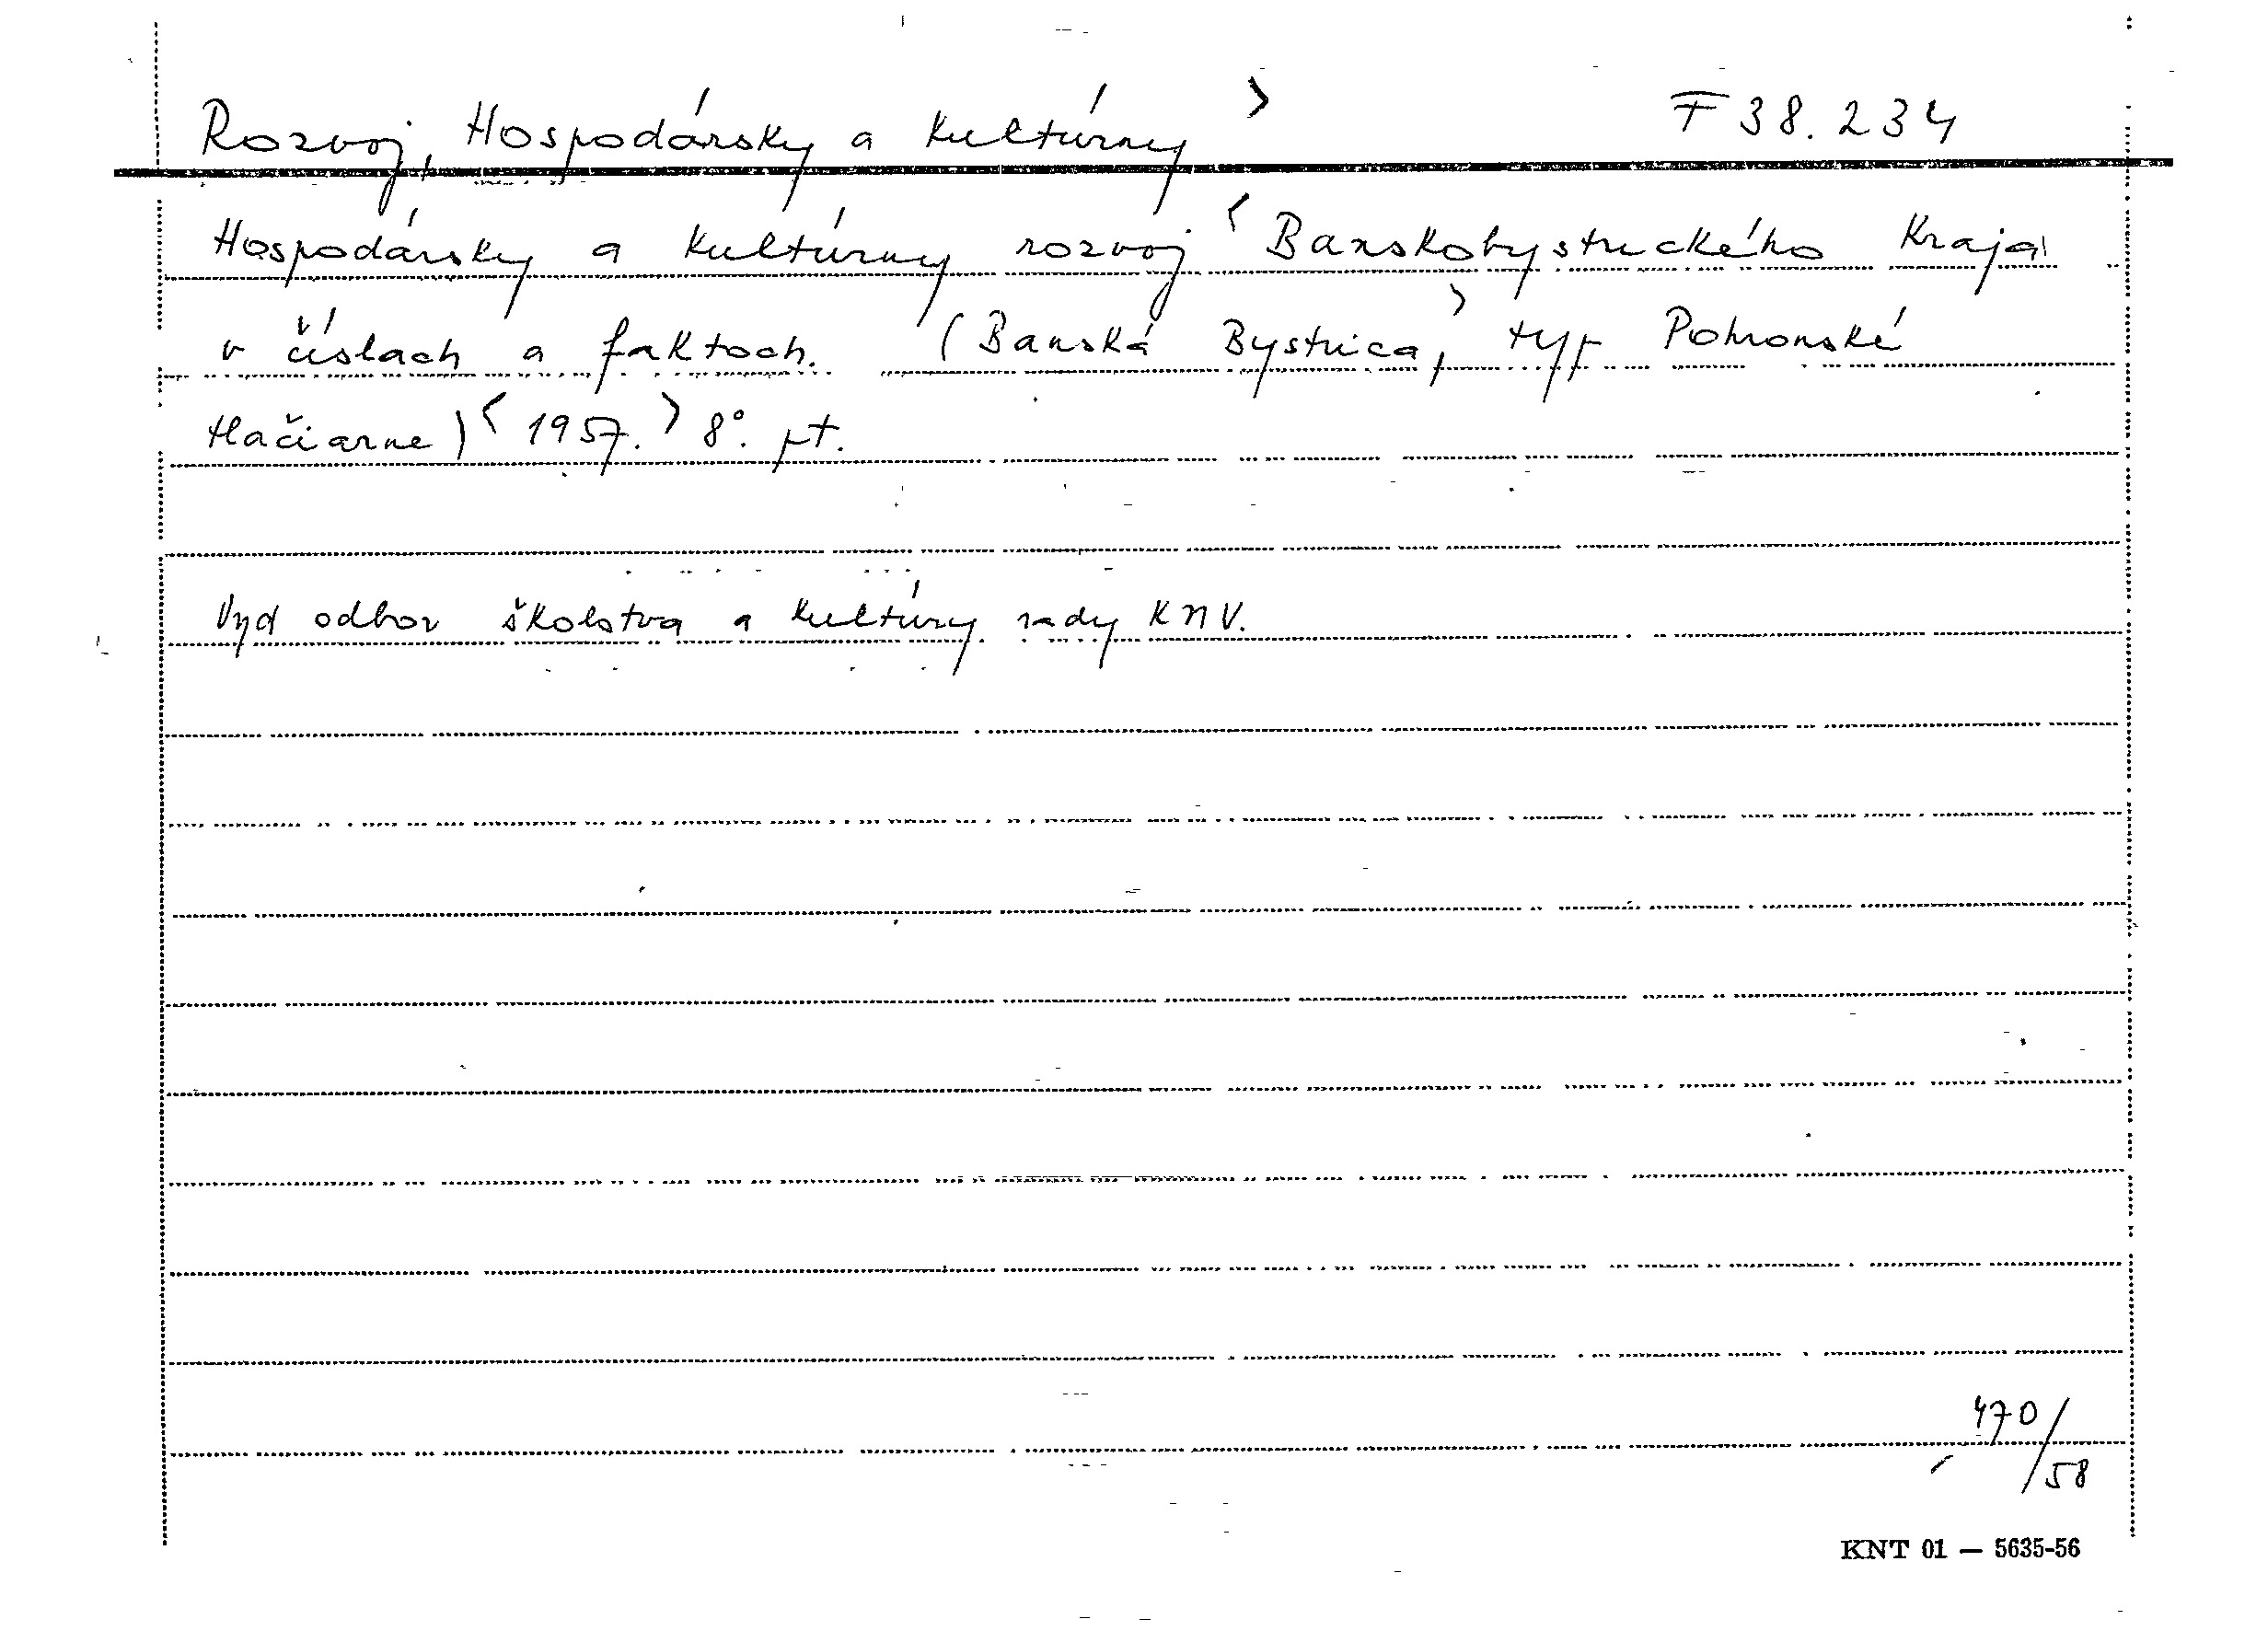 Rozvoj, Hospodársky a kultúrny > F 38.234
Hospodársky a kultúrny rozvoj < Banskobystrického kraja
v číslach a faktoch. (Banská Bystrica, > typ Pohronské
tlačiarne) < 1957. > 8°. pt.
Vyd odbor školstva a kultúry rady KNV.
470/
/58
KNT 01 — 5635-56